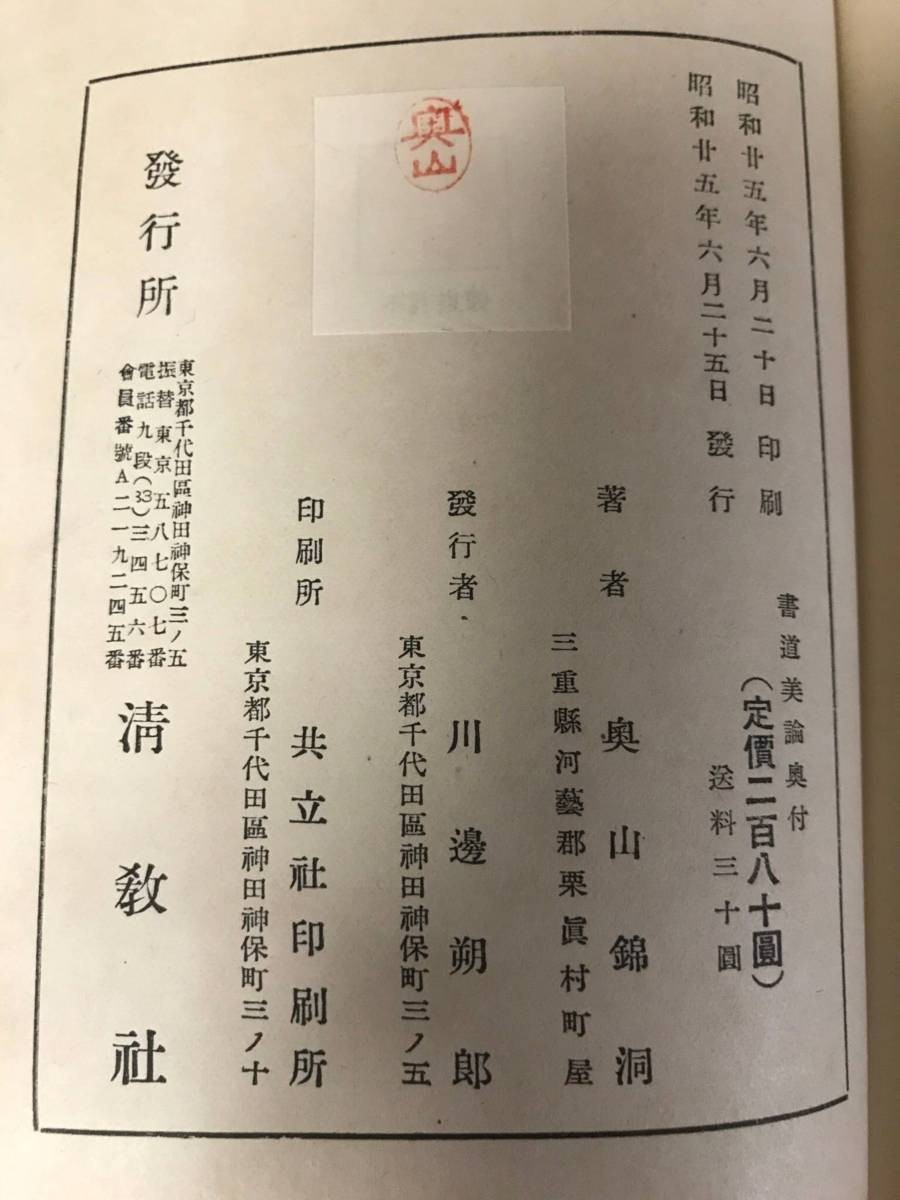 昭和廿五年六月二十日 印刷
昭和廿五年六月二十五日 發行
書道美論奧付
(定價二百八十圓)
送料三十圓
奥山
著者
三重縣河藝郡栗眞村町屋
奥山錦洞
發行者
東京都千代田區神田神保町三ノ五
川邊朔郎
印刷所
東京都千代田區神田神保町三ノ十
共立社印刷所
發行所
東京都千代田區神田神保町三ノ五
振替東京五八七〇七番
電話九段(33)三四五六番
會員番號A二一九二四五番
淸敎社